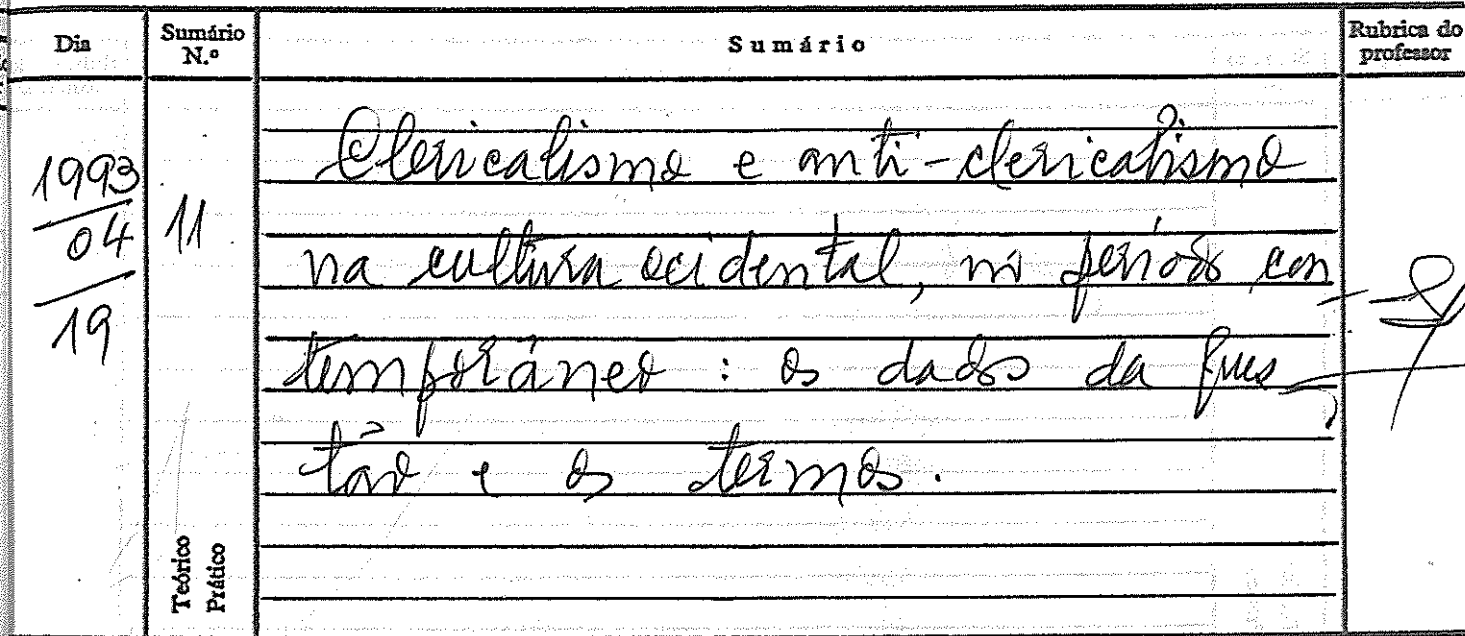 Dia
Sumário
N.º
Sumário
Rubrica do
professor
1993
04
19
11
Clericalismo e anti-clericalismo
na cultura ocidental, no período con
temporâneo : os dados da ques
tão e os termos.
Teórico
Prático